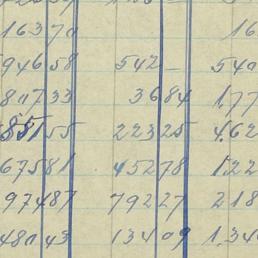 16370 16
94658 542 — 540
80733 3684 177
88155 22325 462
67581 45278 122
97487 79227 218
48043 13409 1,340